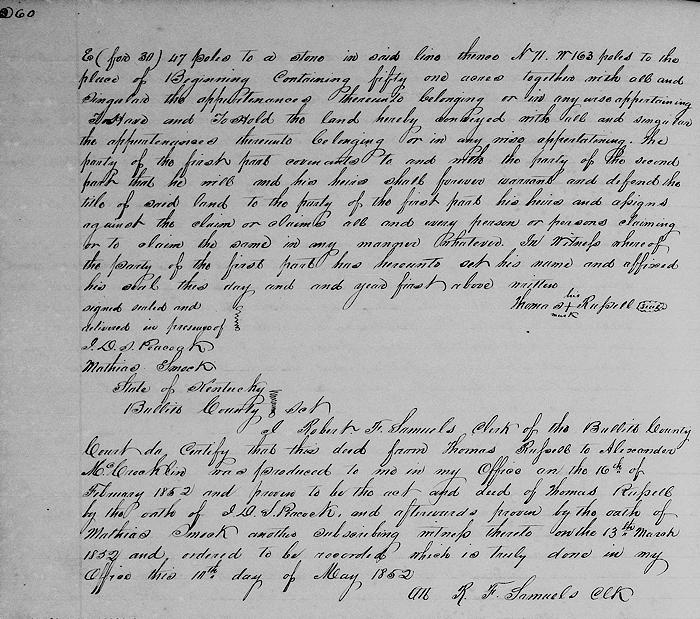 60
E (for 30) 47 poles to a stone in said line thence N 71. W 163 poles to the
place of Beginning Containing fifty one acres together with all and
Singular the appurtenances thereunto belonging or in any wise appertaining
To Have and To Hold the land hereby conveyed with all and singular
the appurtenances thereunto belonging or in any wise appertaining. The
party of the first part covenants to and with the party of the second
part that he will and his heirs shall forever warrant and defend the
title of said land to the party of the first part his heirs and assigns
against the claim or claims all and every person or persons claiming
or to claim the same in any manner whatever. In Witness whereof
the party of the first part has hereunto set his name and affixed
his seal this day and and year first above written
signed sealed and
Thomas his + mark Russell Seal
delivered in presence of
J. D. S. Peacock
Mathias Smock
State of Kentucky
Bullitt County Sct
I Robert F. Samuels Clerk of the Bullitt County
Court do Certify that this deed from Thomas Russell to Alexander
McCrocklin was produced to me in my Office on the 16th of
February 1852 and proven to be the act and deed of Thomas Russell
by the oath of J. D. S. Peacock, and afterwards proven by the oath of
Mathias Smock another subscribing witness thereto on the 13th March
1852 and, ordered to be recorded which is truly done in my
Office this 10th day of May 1852
Att R. F. Samuels Clk